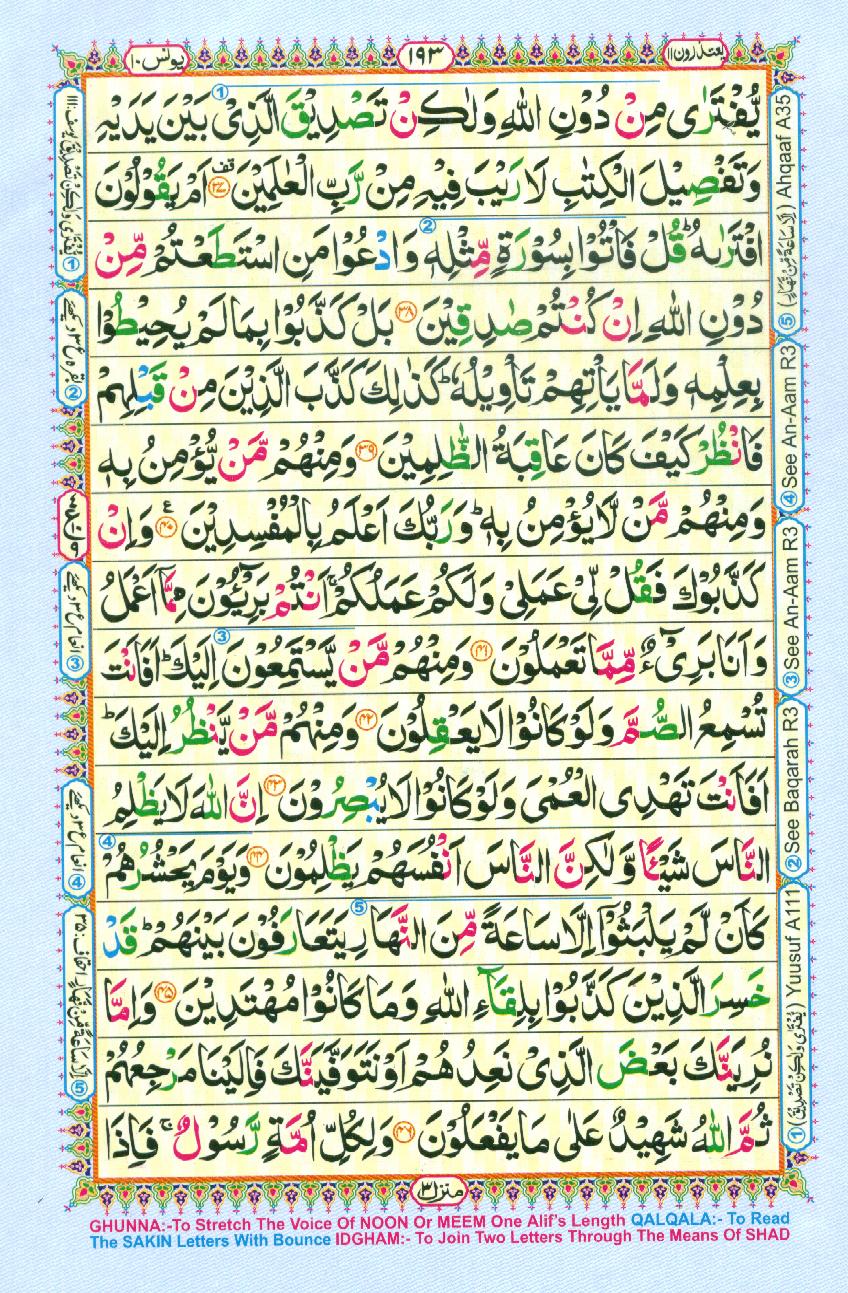 یعتذرون ١١
١٩٣
یونس ١٠
یُّفْتَرٰی مِنْ دُوْنِ اللّٰهِ وَلٰكِنْ تَصْدِیْقَ الَّذِیْ بَیْنَ یَدَیْهِ
وَتَفْصِیْلَ الْكِتٰبِ لَا رَیْبَ فِیْهِ مِنْ رَّبِّ الْعٰلَمِیْنَ ٣٧ قف اَمْ یَقُوْلُوْنَ
افْتَرٰىهُ ؕ قُلْ فَاْتُوْا بِسُوْرَةٍ مِّثْلِهٖ وَادْعُوْا مَنِ اسْتَطَعْتُمْ مِّنْ
دُوْنِ اللّٰهِ اِنْ كُنْتُمْ صٰدِقِیْنَ ٣٨ بَلْ كَذَّبُوْا بِمَا لَمْ یُحِیْطُوْا
بِعِلْمِهٖ وَلَمَّا یَاْتِهِمْ تَاْوِیْلُهٗ ؕ كَذٰلِكَ كَذَّبَ الَّذِیْنَ مِنْ قَبْلِهِمْ
فَانْظُرْ كَیْفَ كَانَ عَاقِبَةُ الظّٰلِمِیْنَ ٣٩ وَمِنْهُمْ مَّنْ یُّؤْمِنُ بِهٖ
وَمِنْهُمْ مَّنْ لَّا یُؤْمِنُ بِهٖ ؕ وَرَبُّكَ اَعْلَمُ بِالْمُفْسِدِیْنَ ٤٠ ع وَاِنْ
كَذَّبُوْكَ فَقُلْ لِّیْ عَمَلِیْ وَلَكُمْ عَمَلُكُمْ ۚ اَنْتُمْ بَرِیْٓـُٔوْنَ مِمَّاۤ اَعْمَلُ
وَاَنَا بَرِیْٓءٌ مِّمَّا تَعْمَلُوْنَ ٤١ وَمِنْهُمْ مَّنْ یَّسْتَمِعُوْنَ اِلَیْكَ ؕ اَفَاَنْتَ
تُسْمِعُ الصُّمَّ وَلَوْ كَانُوْا لَا یَعْقِلُوْنَ ٤٢ وَمِنْهُمْ مَّنْ یَّنْظُرُ اِلَیْكَ ؕ
اَفَاَنْتَ تَهْدِی الْعُمْیَ وَلَوْ كَانُوْا لَا یُبْصِرُوْنَ ٤٣ اِنَّ اللّٰهَ لَا یَظْلِمُ
النَّاسَ شَیْـًٔا وَّلٰكِنَّ النَّاسَ اَنْفُسَهُمْ یَظْلِمُوْنَ ٤٤ وَیَوْمَ یَحْشُرُهُمْ
كَاَنْ لَّمْ یَلْبَثُوْۤا اِلَّا سَاعَةً مِّنَ النَّهَارِ یَتَعَارَفُوْنَ بَیْنَهُمْ ؕ قَدْ
خَسِرَ الَّذِیْنَ كَذَّبُوْا بِلِقَآءِ اللّٰهِ وَمَا كَانُوْا مُهْتَدِیْنَ ٤٥ وَاِمَّا
نُرِیَنَّكَ بَعْضَ الَّذِیْ نَعِدُهُمْ اَوْ نَتَوَفَّیَنَّكَ فَاِلَیْنَا مَرْجِعُهُمْ
ثُمَّ اللّٰهُ شَهِیْدٌ عَلٰی مَا یَفْعَلُوْنَ ٤٦ وَلِكُلِّ اُمَّةٍ رَّسُوْلٌ ۚ فَاِذَا
منزل ٣
⑤ (اِلَّا سَاعَةً مِّنْ نَّهَارٍ) Ahqaaf A35
④ See An-Aam R3
③ See An-Aam R3
② See Baqarah R3
① (یُّفْتَرٰی وَلٰكِنْ تَصْدِیْقَ) Yuusuf A111
① یُّفْتَرٰی وَلٰكِنْ تَصْدِیْقَ یوسف: ١١١
② بقرہ ع ٣ دیکھئے
③ انعام ع ٣ دیکھئے
④ انعام ع ٣ دیکھئے
⑤ اِلَّا سَاعَةً مِّنْ نَّهَارٍ احقاف: ٣٥
GHUNNA:-To Stretch The Voice Of NOON Or MEEM One Alif's Length QALQALA:- To Read
The SAKIN Letters With Bounce IDGHAM:- To Join Two Letters Through The Means Of SHAD